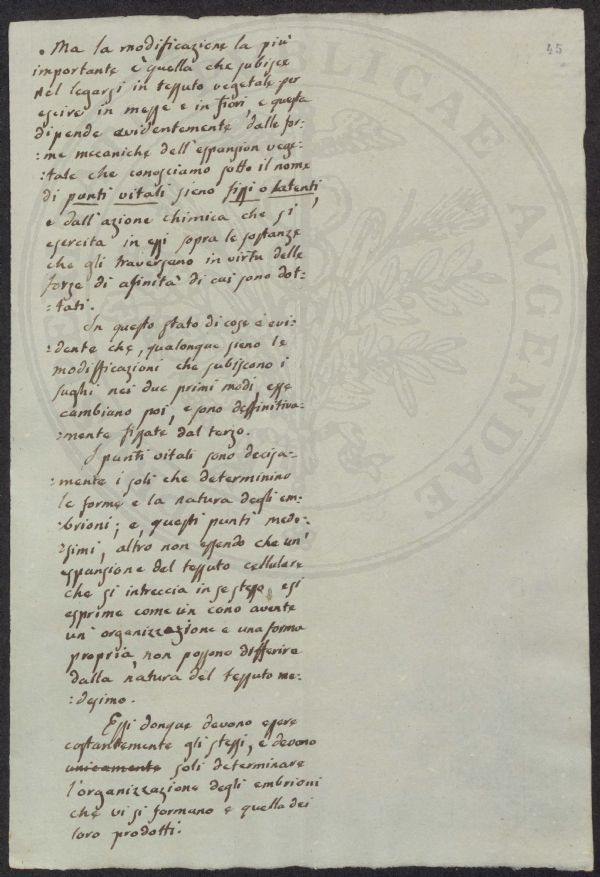 45
. Ma la modificazione la più
importante è quella che subisce
nel legarsi in tessuto vegetale per
escire in messe e in fiori, e questa
dipende evidentemente dalle for:
:me meccaniche dell'espansion vege:
:tale che conosciamo sotto il nome
di punti vitali sieno fissi o latenti,
e dall'azione chimica che si
esercita in essi sopra le sostanze
che gli traversano in virtu delle
forze di afinità di cui sono dot:
:tati.
In questo stato di cose è evi:
:dente che, qualonque sieno le
modifficazioni che subiscono i
sughi nei due primi modi, esse
cambiano poi, e sono deffinitiva:
:mente fissate dal terzo.
I punti vitali sono decisa:
:mente i soli che determinino
le forme e la natura degli em:
:brioni; e, questi punti mede:
:simi, altro non essendo che un'
espansione del tessuto cellulare
che si intreccia in se stesso, esi
esprime come un cono avente
un'organizzazione e una forma
propria, non possono differire
dalla natura del tessuto me:
:desimo.
Essi donque devono essere
costantemente gli stessi, e devono
unicamente soli determinare
l'organizzazione degli embrioni
che vi si formano e quella dei
loro prodotti.